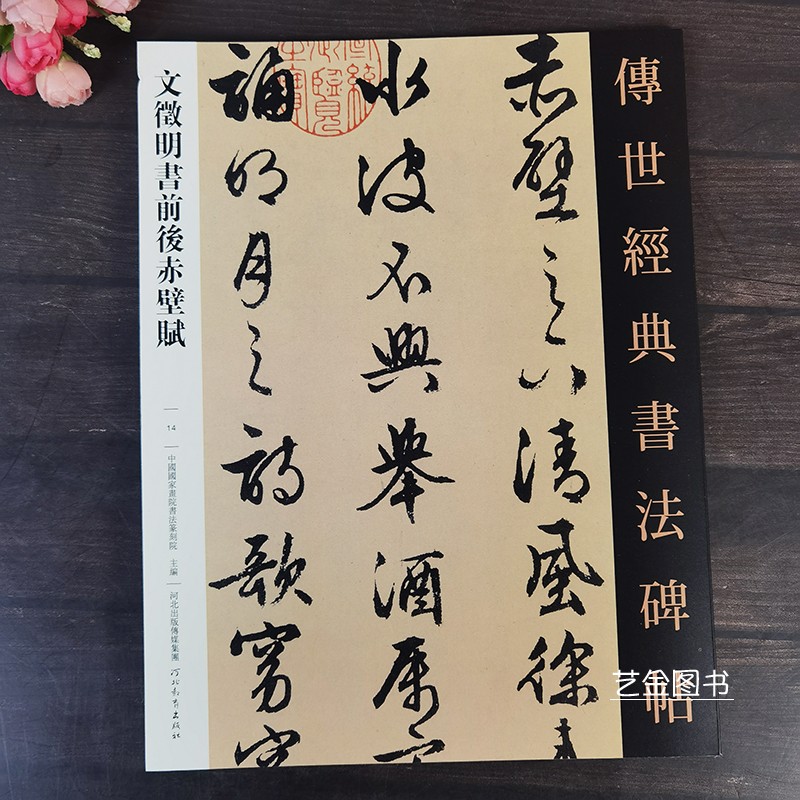 傳世經典書法碑帖
赤壁之下清風徐來
水波不興舉酒屬客
誦明月之詩歌窈窕
文徵明書前後赤壁賦
14
中國國家畫院書法篆刻院 主編
河北出版傳媒集團
河北教育出版社
艺金图书